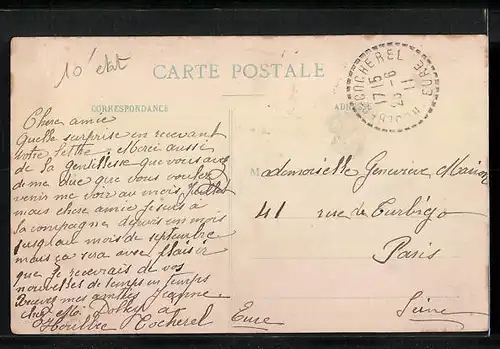 10 état
CARTE POSTALE
CORRESPONDANCE
COCHEREL
EURE
17 15
25 - 6
11
Chere amie
Quelle surprise en recevant
votre lettre. Merci aussi
de la gentillesse que vous avez
de me dire que vous voulez
venir me voir au mois Juillet
mais chere amie je suis à
la compagne depuis un mois
jusqu'au mois de septembre
mais ça sera avec plaisir
que je recevrais de vos
nouvelles de temps en temps
Recevez mes amitiés Jeanne
chez Mr
à
Cocherel Eure
Mademoiselle Genevieve
41 rue de Turbigo
Paris
Seine